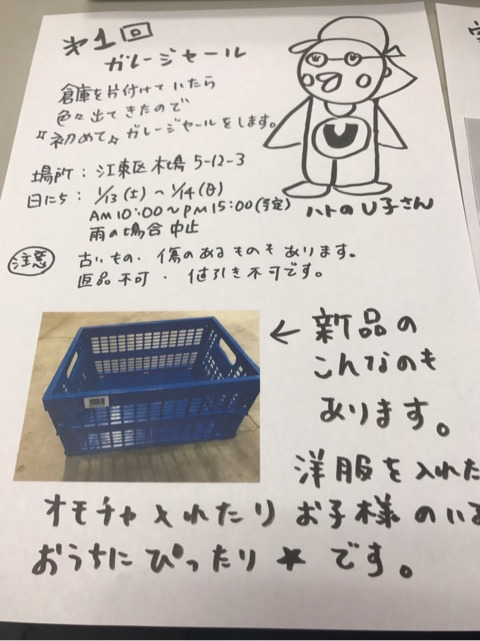 第1回
ガレージセール
倉庫を片付けていたら
色々出てきたので
☆初めて☆ガレージセールをします。
場所：江東区木場5-12-3
日にち：1/13(土)〜1/14(日)
AM10:00〜PM15:00(予定)
雨の場合中止
ハトのU子さん
U
注意
古いもの・傷のあるものもあります。
返品不可・値引き不可です。
← 新品の
こんなのも
あります。
洋服を入れた
オモチャ入れたりお子様のいる
おうちにぴったり★です。